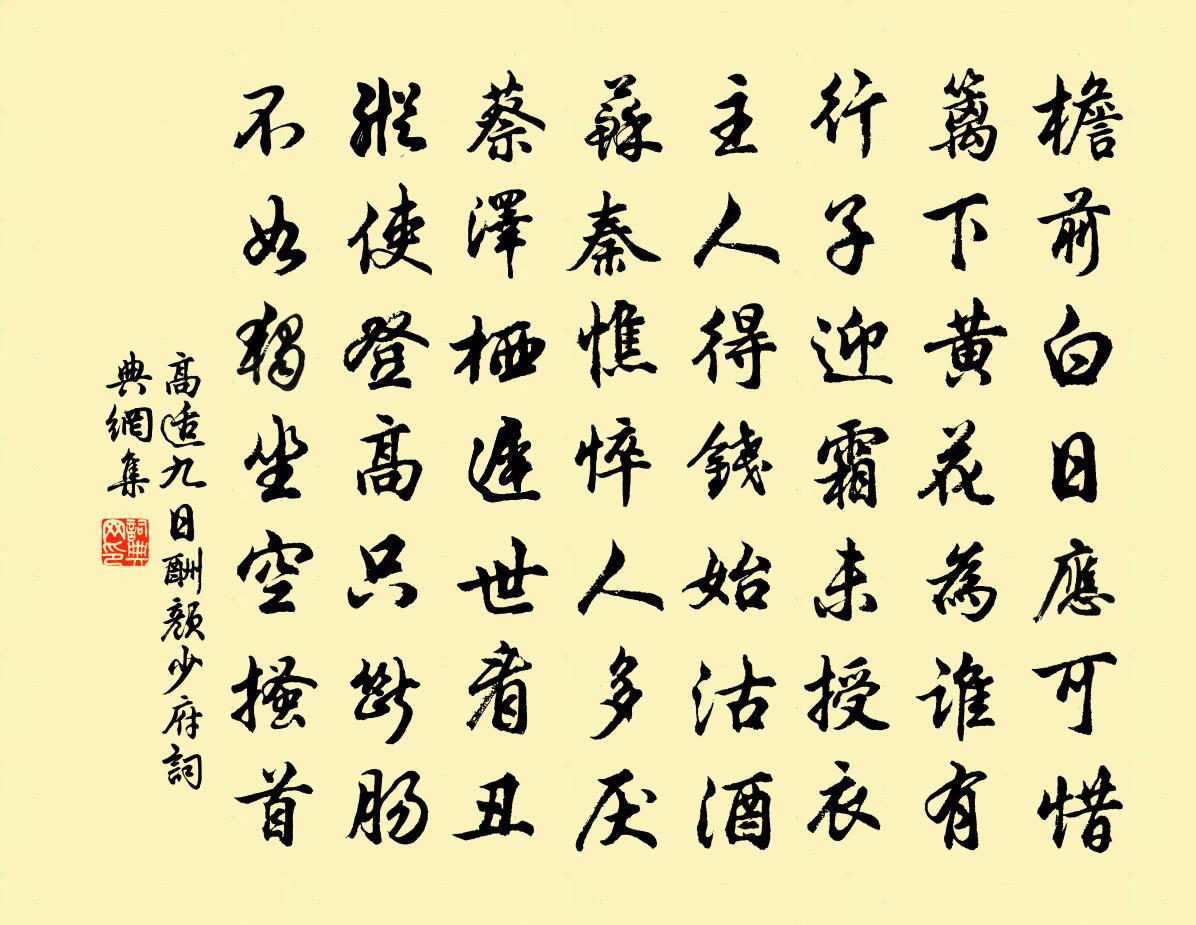 檐前白日應可惜
籬下黄花為誰有
行子迎霜未授衣
主人得錢始沽酒
蘇秦憔悴人多厌
蔡澤栖遲世看丑
縱使登高只斷腸
不如獨坐空搔首
高适九日酬顏少府詞
典網集
詞典
网印